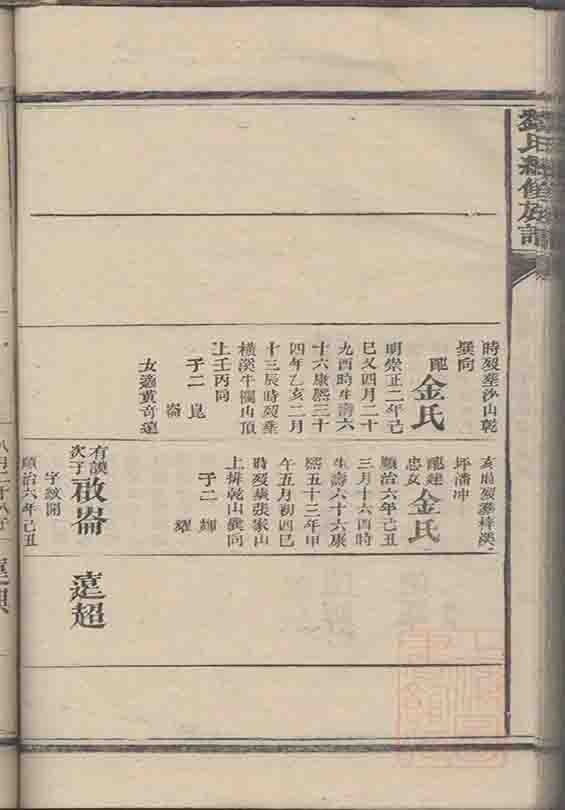 時歿塟沙山乾
巽向
配
金氏
明崇正二年己
巳又四月二十
九酉時生壽六
十六康熙三十
四年乙亥二月
十三辰時歿塟
橫溪牛欄山頂
上壬丙同
子二
崑
崙
女適黃奇蓮
亥時歿塟梓溪
坪潘冲
配建
忠女
金氏
順治六年己丑
三月十六酉時
生壽六十六康
熙五十三年甲
午五月初四巳
時歿塟張家山
上排乾山巽向
子二
輝
耀
有謨
次子
啟崙
字紋開
順治六年己丑
遠超
氏
修族譜